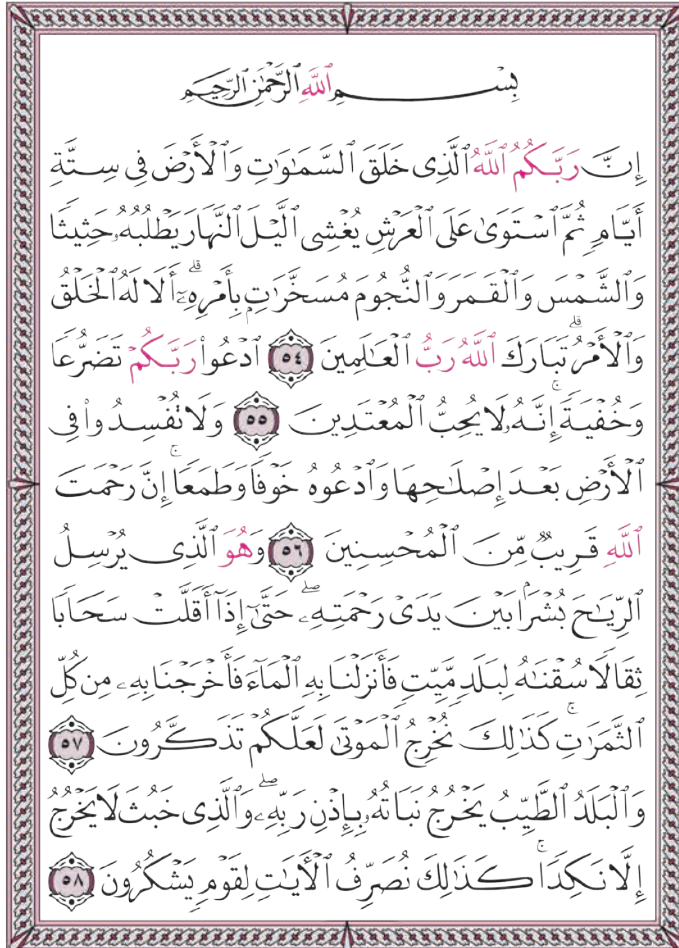 بِسْمِ ٱللَّهِ ٱلرَّحْمَٰنِ ٱلرَّحِيمِ
إِنَّ رَبَّكُمُ ٱللَّهُ ٱلَّذِى خَلَقَ ٱلسَّمَٰوَٰتِ وَٱلْأَرْضَ فِى سِتَّةِ
أَيَّامٍ ثُمَّ ٱسْتَوَىٰ عَلَى ٱلْعَرْشِ يُغْشِى ٱلَّيْلَ ٱلنَّهَارَ يَطْلُبُهُۥ حَثِيثًا
وَٱلشَّمْسَ وَٱلْقَمَرَ وَٱلنُّجُومَ مُسَخَّرَٰتٍۭ بِأَمْرِهِۦٓ ۗ أَلَا لَهُ ٱلْخَلْقُ
وَٱلْأَمْرُ ۗ تَبَارَكَ ٱللَّهُ رَبُّ ٱلْعَٰلَمِينَ ٥٤ ٱدْعُوا۟ رَبَّكُمْ تَضَرُّعًا
وَخُفْيَةً ۚ إِنَّهُۥ لَا يُحِبُّ ٱلْمُعْتَدِينَ ٥٥ وَلَا تُفْسِدُوا۟ فِى
ٱلْأَرْضِ بَعْدَ إِصْلَٰحِهَا وَٱدْعُوهُ خَوْفًا وَطَمَعًا ۚ إِنَّ رَحْمَتَ
ٱللَّهِ قَرِيبٌ مِّنَ ٱلْمُحْسِنِينَ ٥٦ وَهُوَ ٱلَّذِى يُرْسِلُ
ٱلرِّيَٰحَ بُشْرًۢا بَيْنَ يَدَىْ رَحْمَتِهِۦ ۖ حَتَّىٰٓ إِذَآ أَقَلَّتْ سَحَابًا
ثِقَالًا سُقْنَٰهُ لِبَلَدٍ مَّيِّتٍ فَأَنزَلْنَا بِهِ ٱلْمَآءَ فَأَخْرَجْنَا بِهِۦ مِن كُلِّ
ٱلثَّمَرَٰتِ ۚ كَذَٰلِكَ نُخْرِجُ ٱلْمَوْتَىٰ لَعَلَّكُمْ تَذَكَّرُونَ ٥٧
وَٱلْبَلَدُ ٱلطَّيِّبُ يَخْرُجُ نَبَاتُهُۥ بِإِذْنِ رَبِّهِۦ ۖ وَٱلَّذِى خَبُثَ لَا يَخْرُجُ
إِلَّا نَكِدًا ۚ كَذَٰلِكَ نُصَرِّفُ ٱلْـَٔايَٰتِ لِقَوْمٍ يَشْكُرُونَ ٥٨